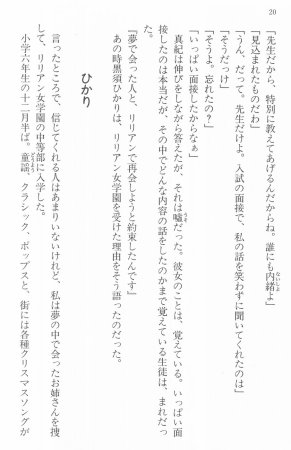 20
「先生だから、特別に教えてあげるんだからね。誰にも内緒よ」
「見込まれたものだわ」
「うん、だって。先生だけよ。入試の面接で、私の話を笑わずに聞いてくれたのは」
「そうだっけ」
「そうよ。忘れたの?」
「いっぱい面接したからなぁ」
真紀は伸びをしながら答えたが、それは嘘だった。彼女のことは、覚えている。いっぱい面
接したのは本当だが、その中でどんな内容の話をしたのかまで覚えている生徒は、まれだっ
た。
『夢で会った人と、リリアンで再会しようと約束したんです』
あの時黒須ひかりは、リリアン女学園を受けた理由をそう語ったのだった。
ひかり
言ったところで、信じてくれる人はあまりいないけれど、私は夢の中で会ったお姉さんを捜
して、リリアン女学園の中等部に入学した。
小学六年生の十二月半ば。童謡、クラシック、ポップスと、街には各種クリスマスソングが